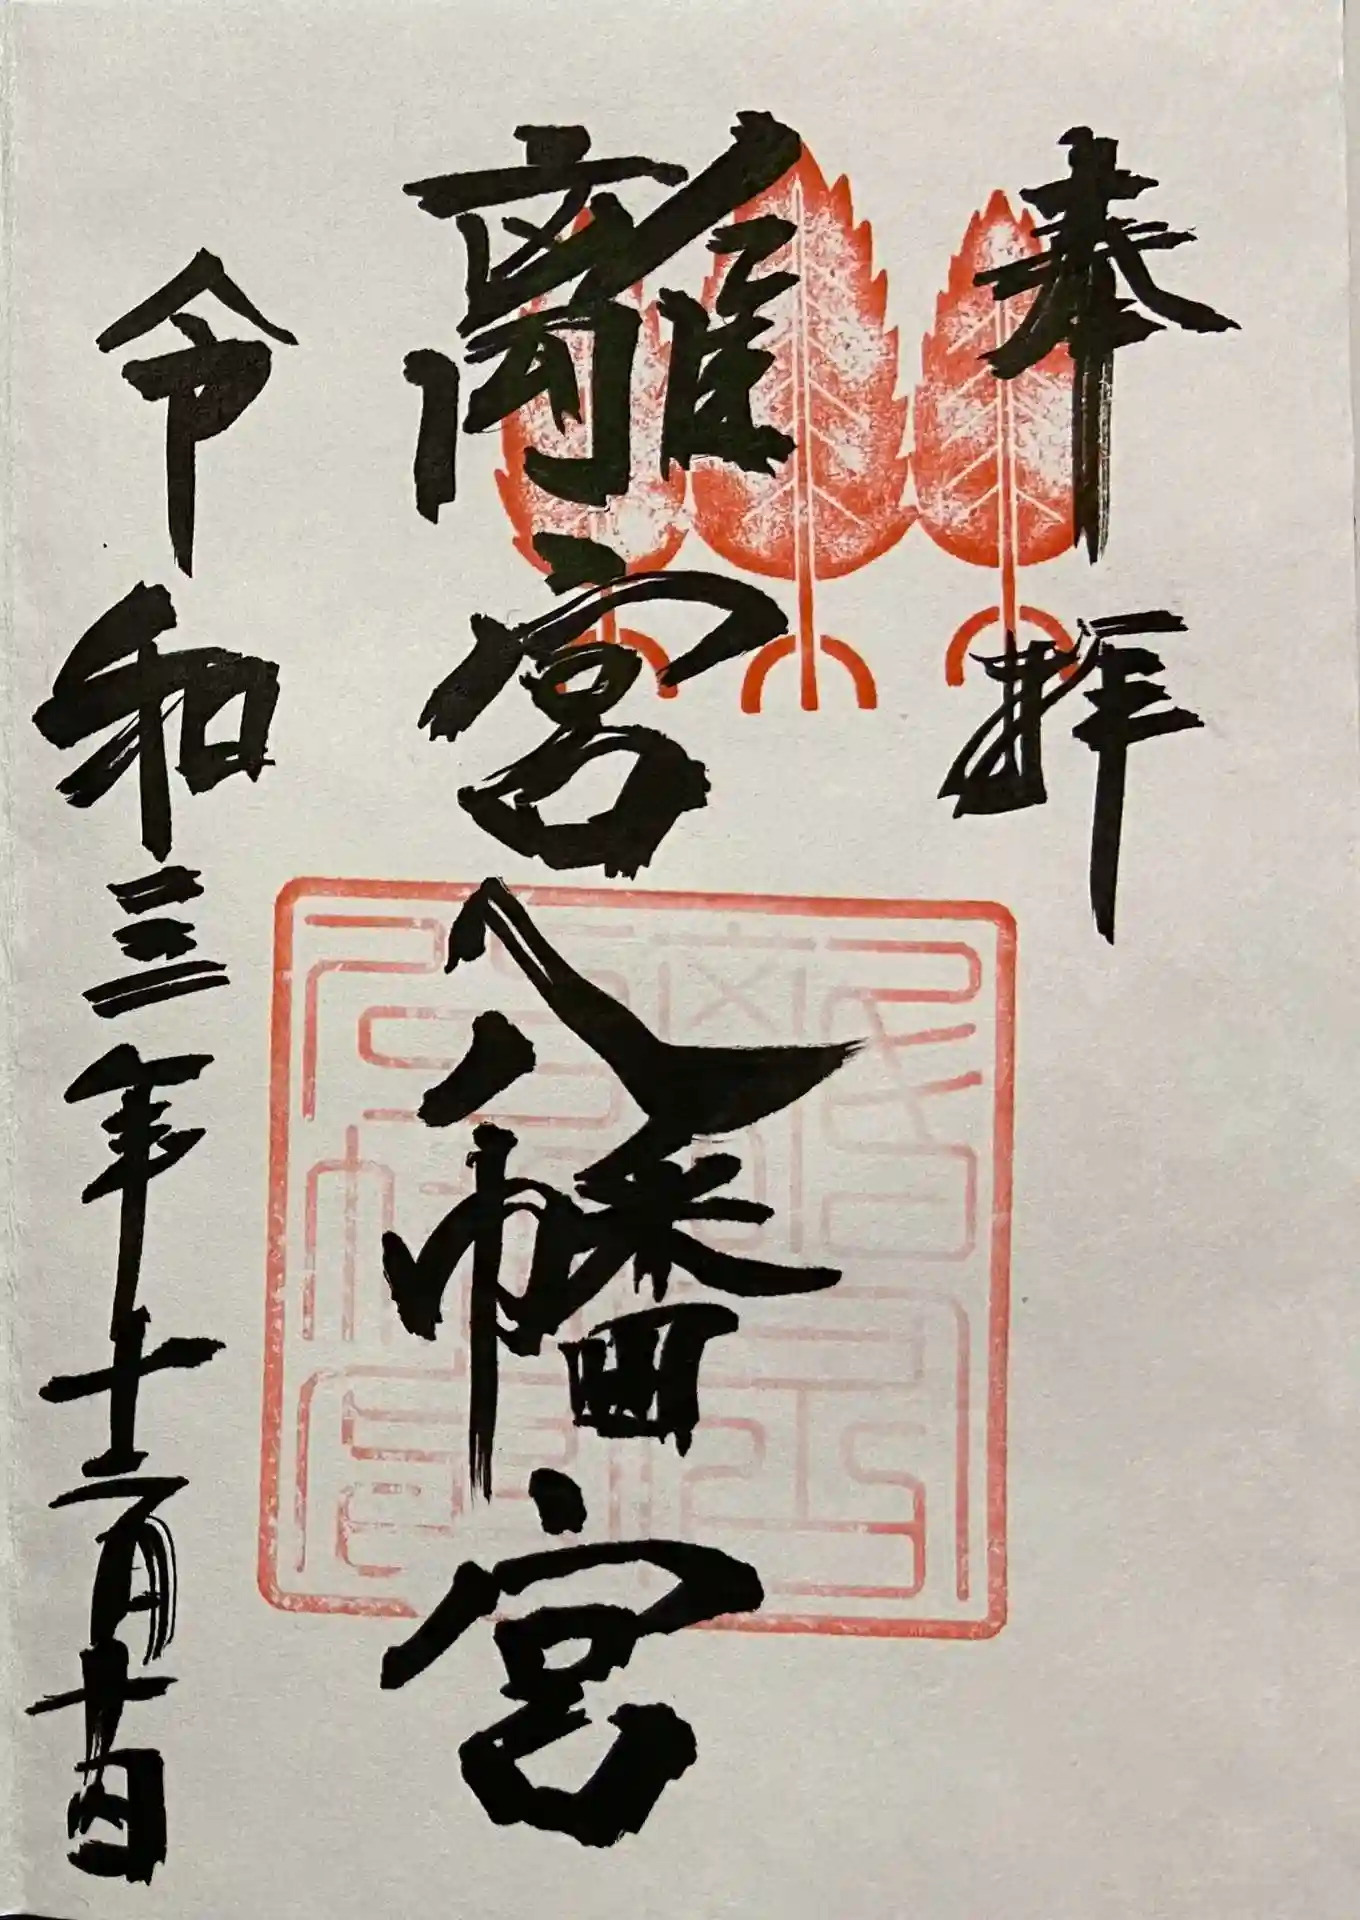 奉拝
離宮八幡宮
令和三年十二月十日